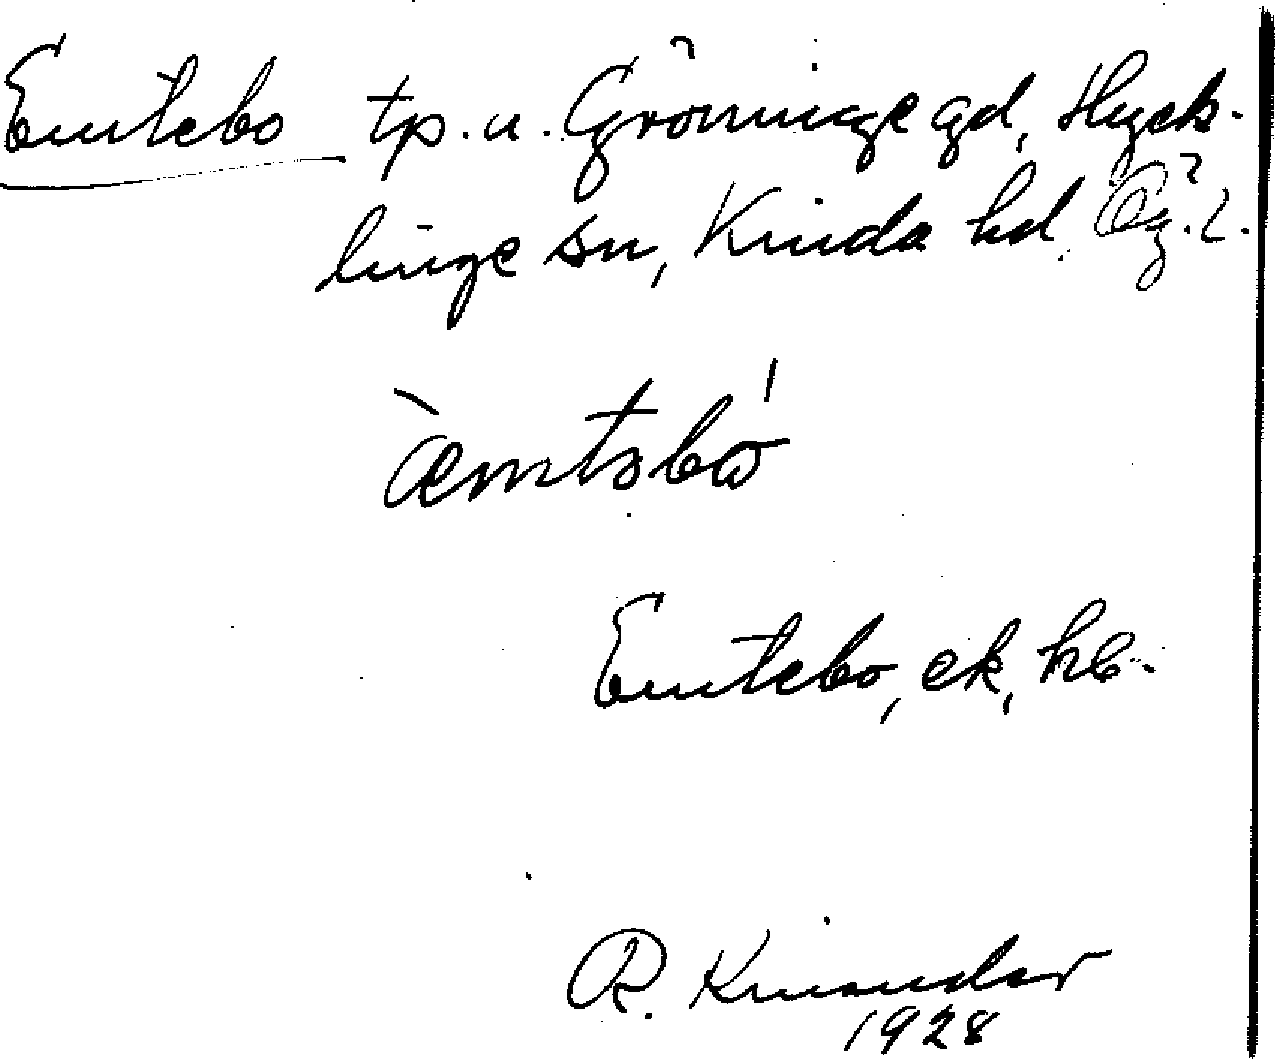 Emtebo tp. u. Gröninge gd, Hyck-
linge sn, Kinda hd. Ög. l.
æ̀mtsbó
Emtebo, ek, hb.
R. Kinander
1928